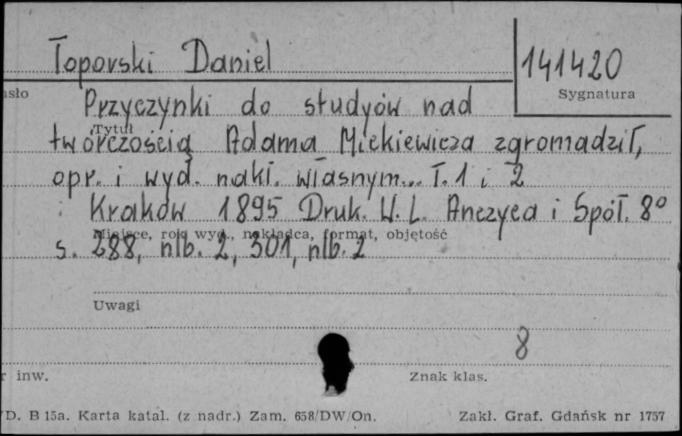 Toporski Daniel
141420
Sygnatura
Przyczynki do studyów nad
Tytuł
twórczością Adama Mickiewicza zgromadził,
opr. i wyd. nakł. własnym... T. 1 i 2
Kraków 1895 Druk. W. L. Anczyca i Spół. 8°
Miejsce, rok wyd., nakładca, format, objętość
s. 288, nlb. 2, 301, nlb. 2
Uwagi
8
inw.
Znak klas.
D. B 15a. Karta katal. (z nadr.) Zam. 658/DW/On.
Zakł. Graf. Gdańsk nr 1757